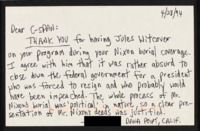 4/28/94
Dear C-SPAN:
THANK YOU for having Jules Witcover
on your program during your Nixon burial coverage.
I agree with him that it was rather absurd to
close down the federal government for a president
who was forced to resign and who probably would
have been impeached. The whole process of the
Nixon burial was "political" in nature, so a clear pre-
sentation of Mr. Nixon's deeds was justified.
DANA POINT, CALIF.